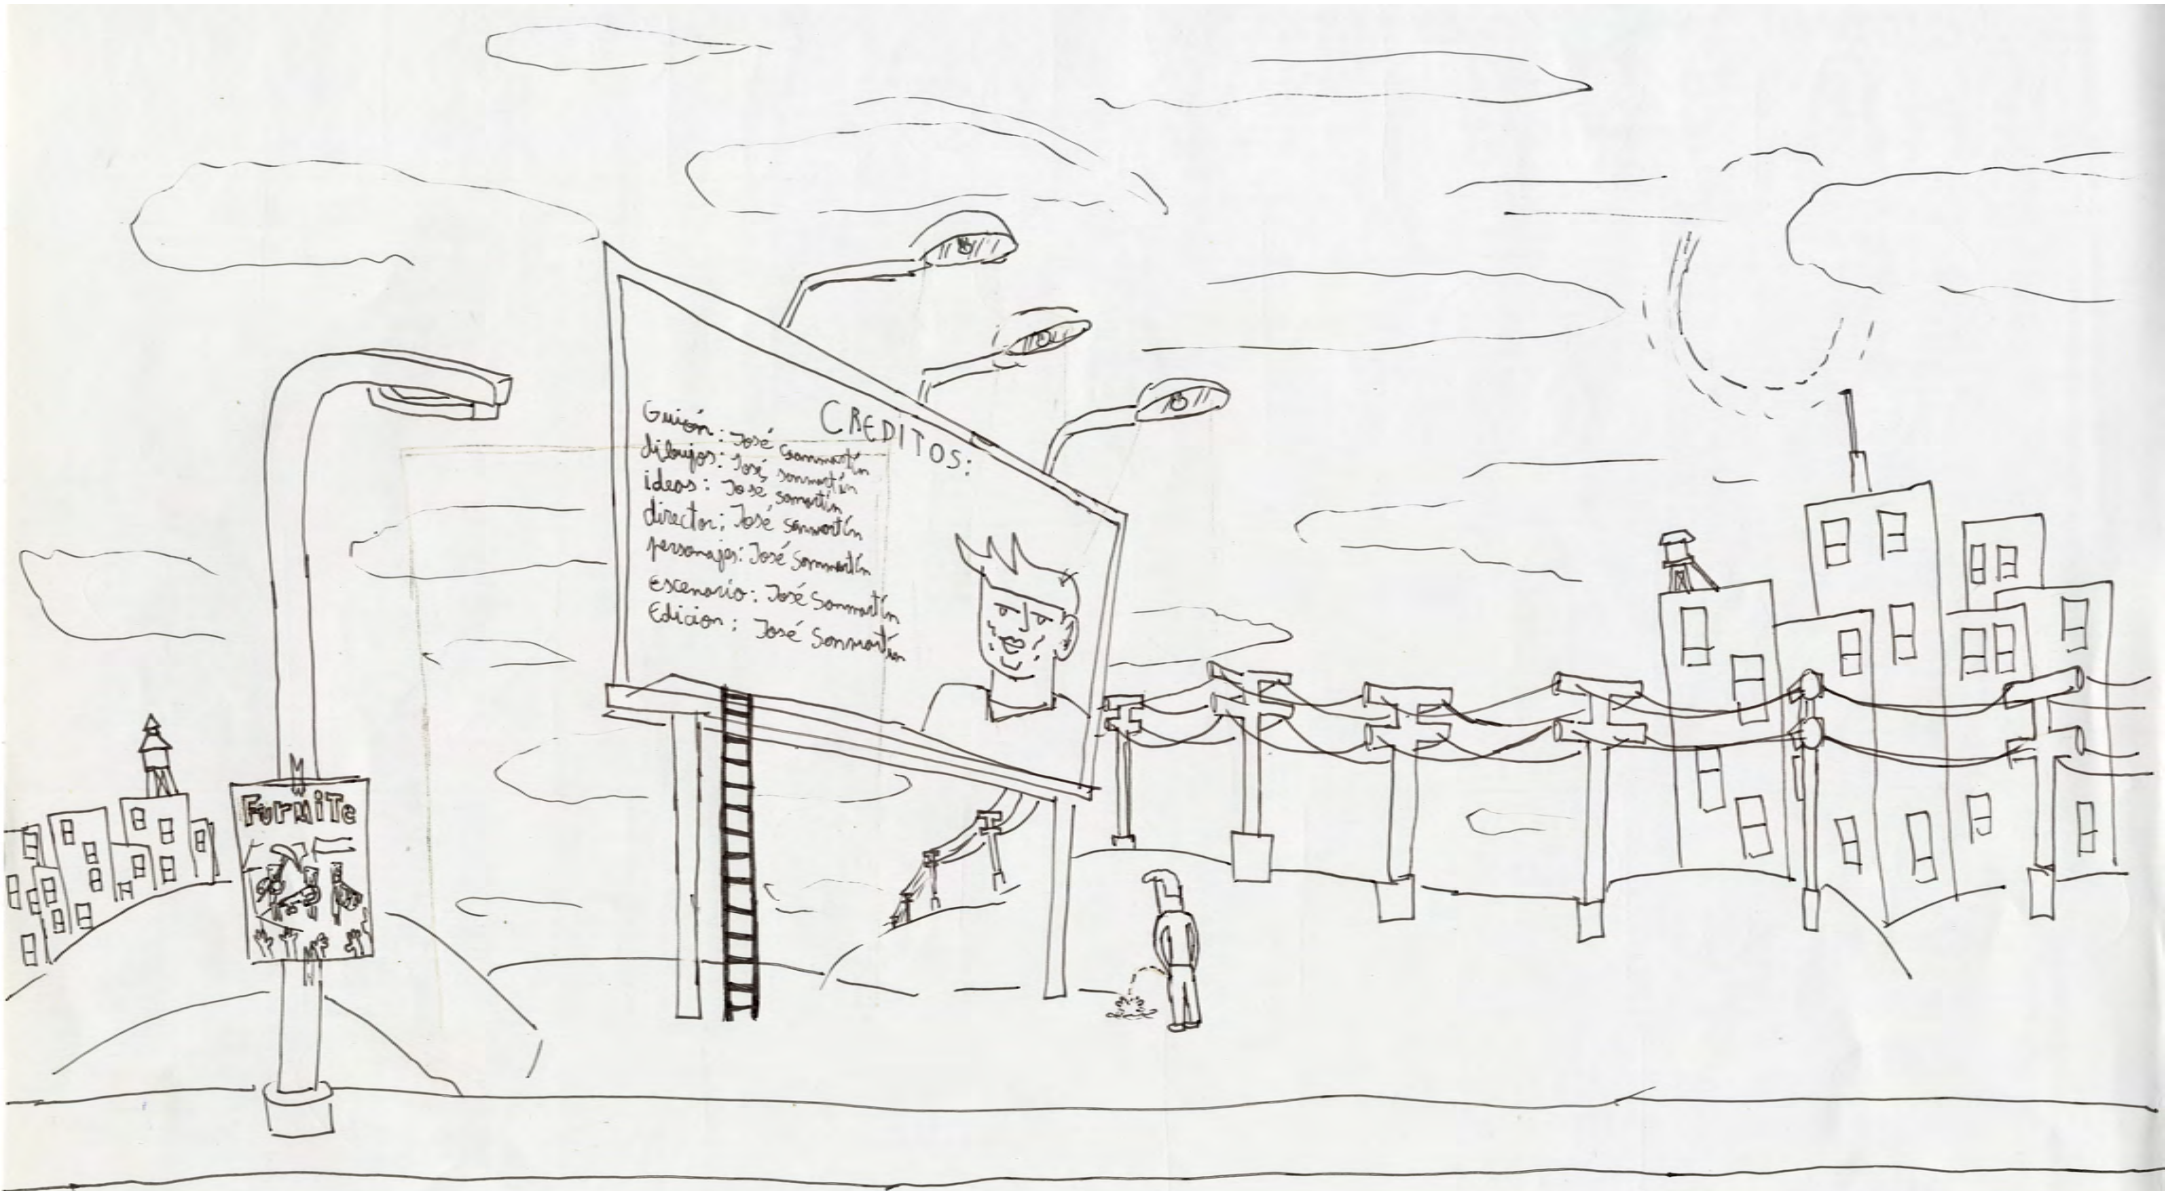 CREDITOS:
Guión: José Sanmartín
dibujos: José sanmartín
ideas: José samartín
director: José sanmartín
personajes: José Sanmartín
escenario: José Sanmartín
Edicion: José Sanmartín
FurmiTe